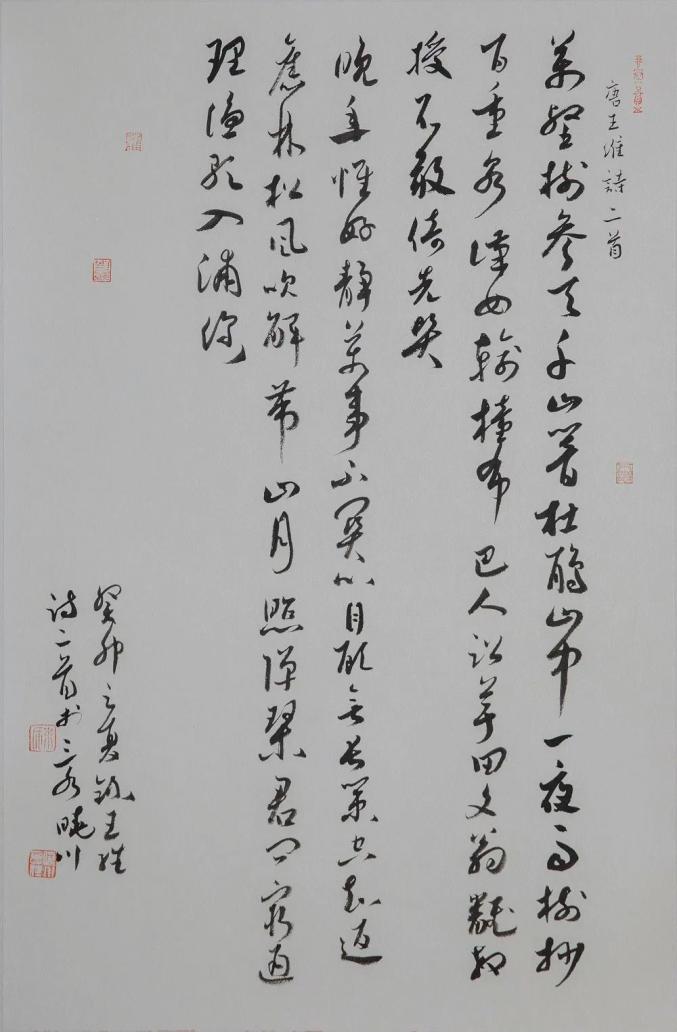 唐王維詩二首
萬壑樹參天千山響杜鵑山中一夜雨樹杪
百重泉漢女輸橦布巴人訟芋田文翁翻教
授不敢倚先賢
晚年惟好靜萬事不關心自顧無長策空知返
舊林松風吹解帶山月照彈琴君問窮通
理漁歌入浦深
癸卯之夏錄王維
詩二首於三